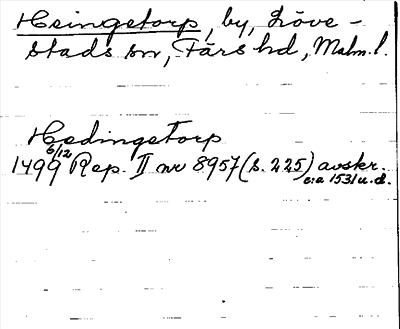 Heingetorp, by, Löve-
stads sn, Färs hd, Malm. l.
Hedingetorp
1499 6/12 Rep. II nr 8957 (s. 225) avskr.
c:a 1531 u.d.